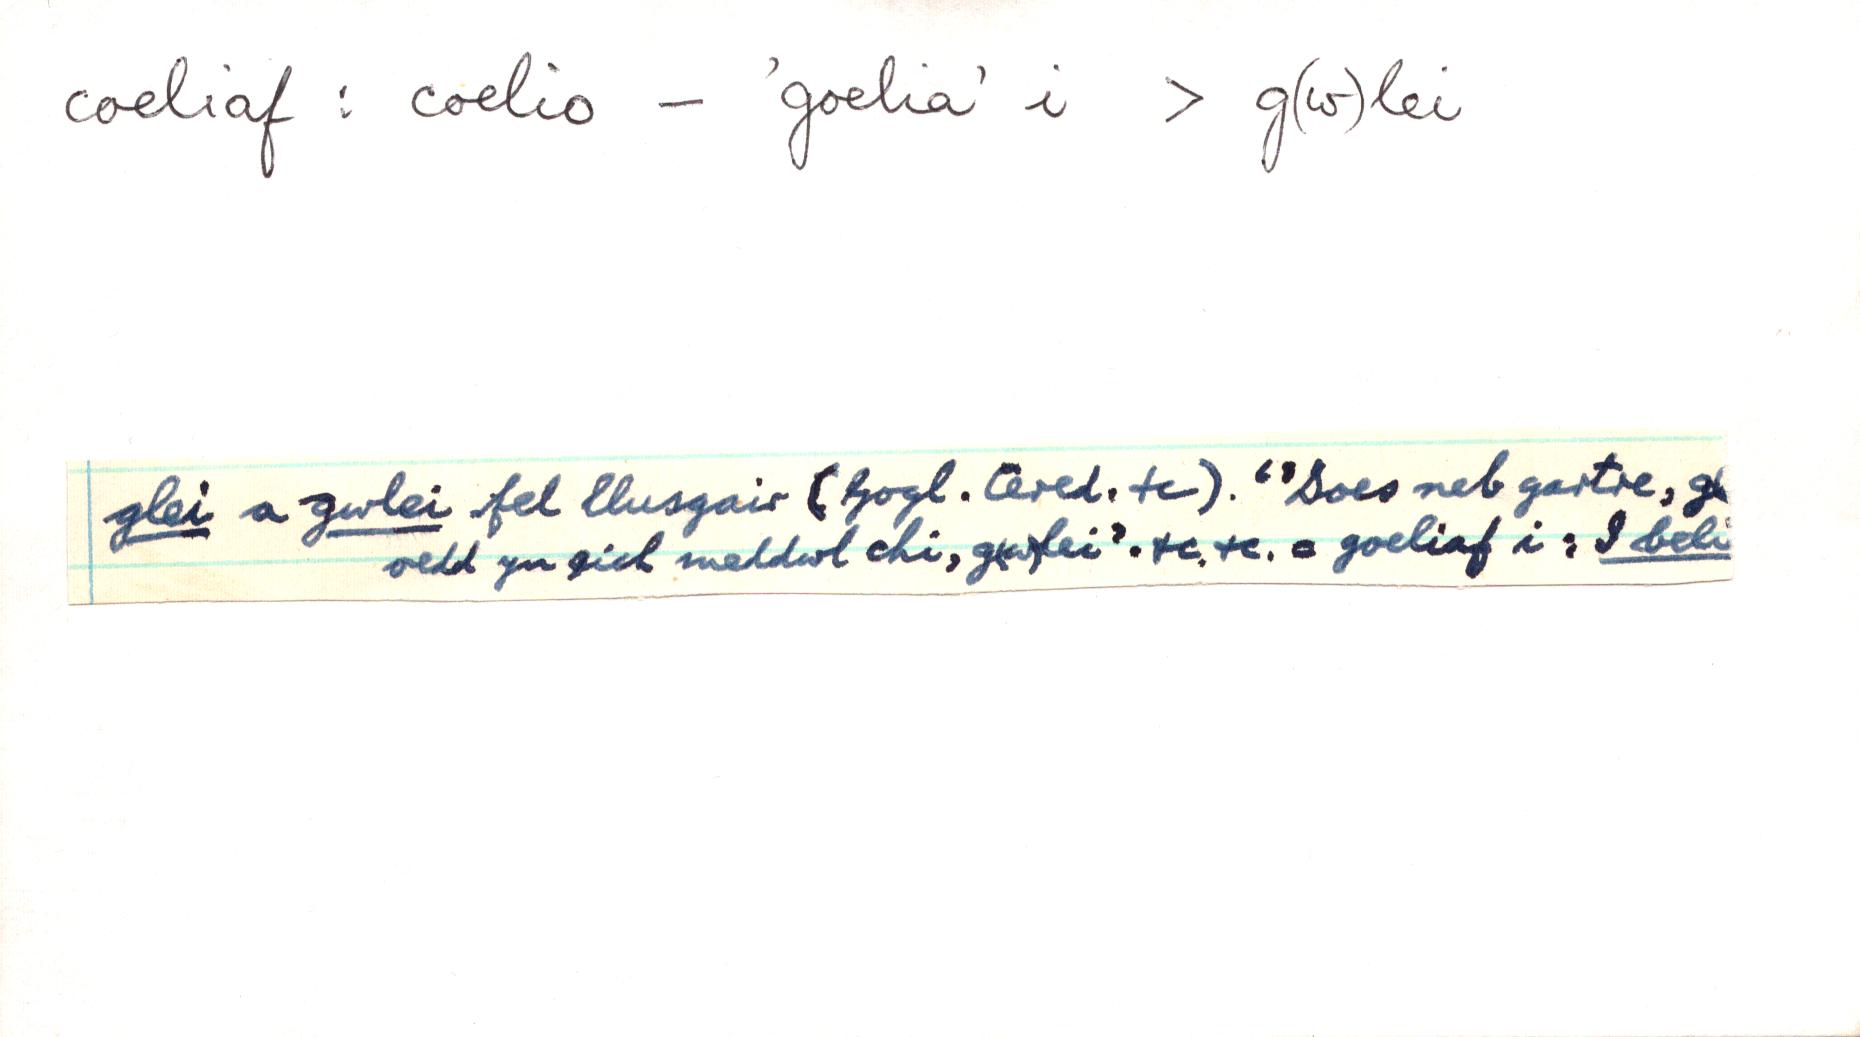 coeliaf : coelio – 'goelia' i > g(w)lei
glei a gwlei fel llusgair (Gogl. Cered. +c). "'Does neb gartre,
oedd yn eich meddwl chi, g(w)lei'. +c. +c. = goeliaf i : I beli